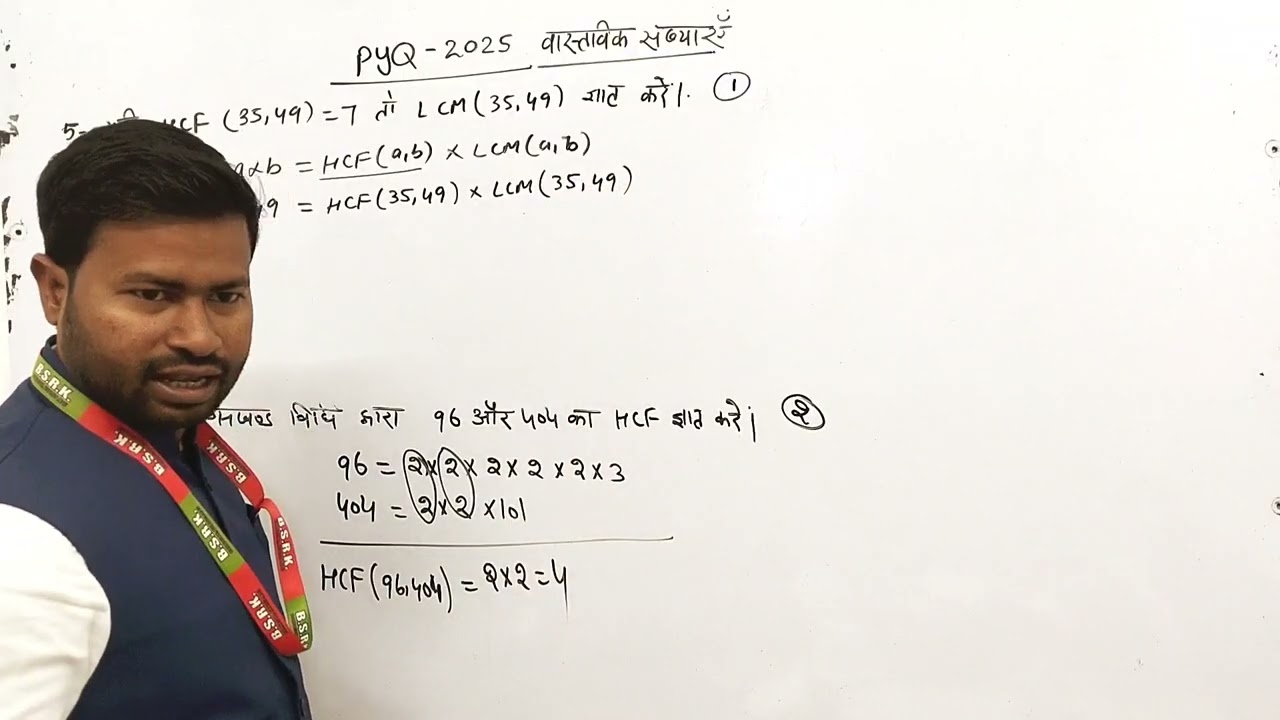 PYQ - 2025 वास्तविक संख्याएँ
5- HCF (35,49) = 7 तो LCM (35,49) ज्ञात करें। ①
a×b = HCF(a,b) × LCM(a,b)
9 = HCF(35,49) × LCM(35,49)
विधि द्वारा 96 और 404 का HCF ज्ञात करे। ②
96 = 2×2×2×2×2×3
404 = 2×2×101
HCF(96,404) = 2×2=4
B.S.R.K.
B.S.R.K.
B.S.R.K.
B.S.R.K.
B.S.R.K.
B.S.R.K.
B.S.R.K.
B.S.R